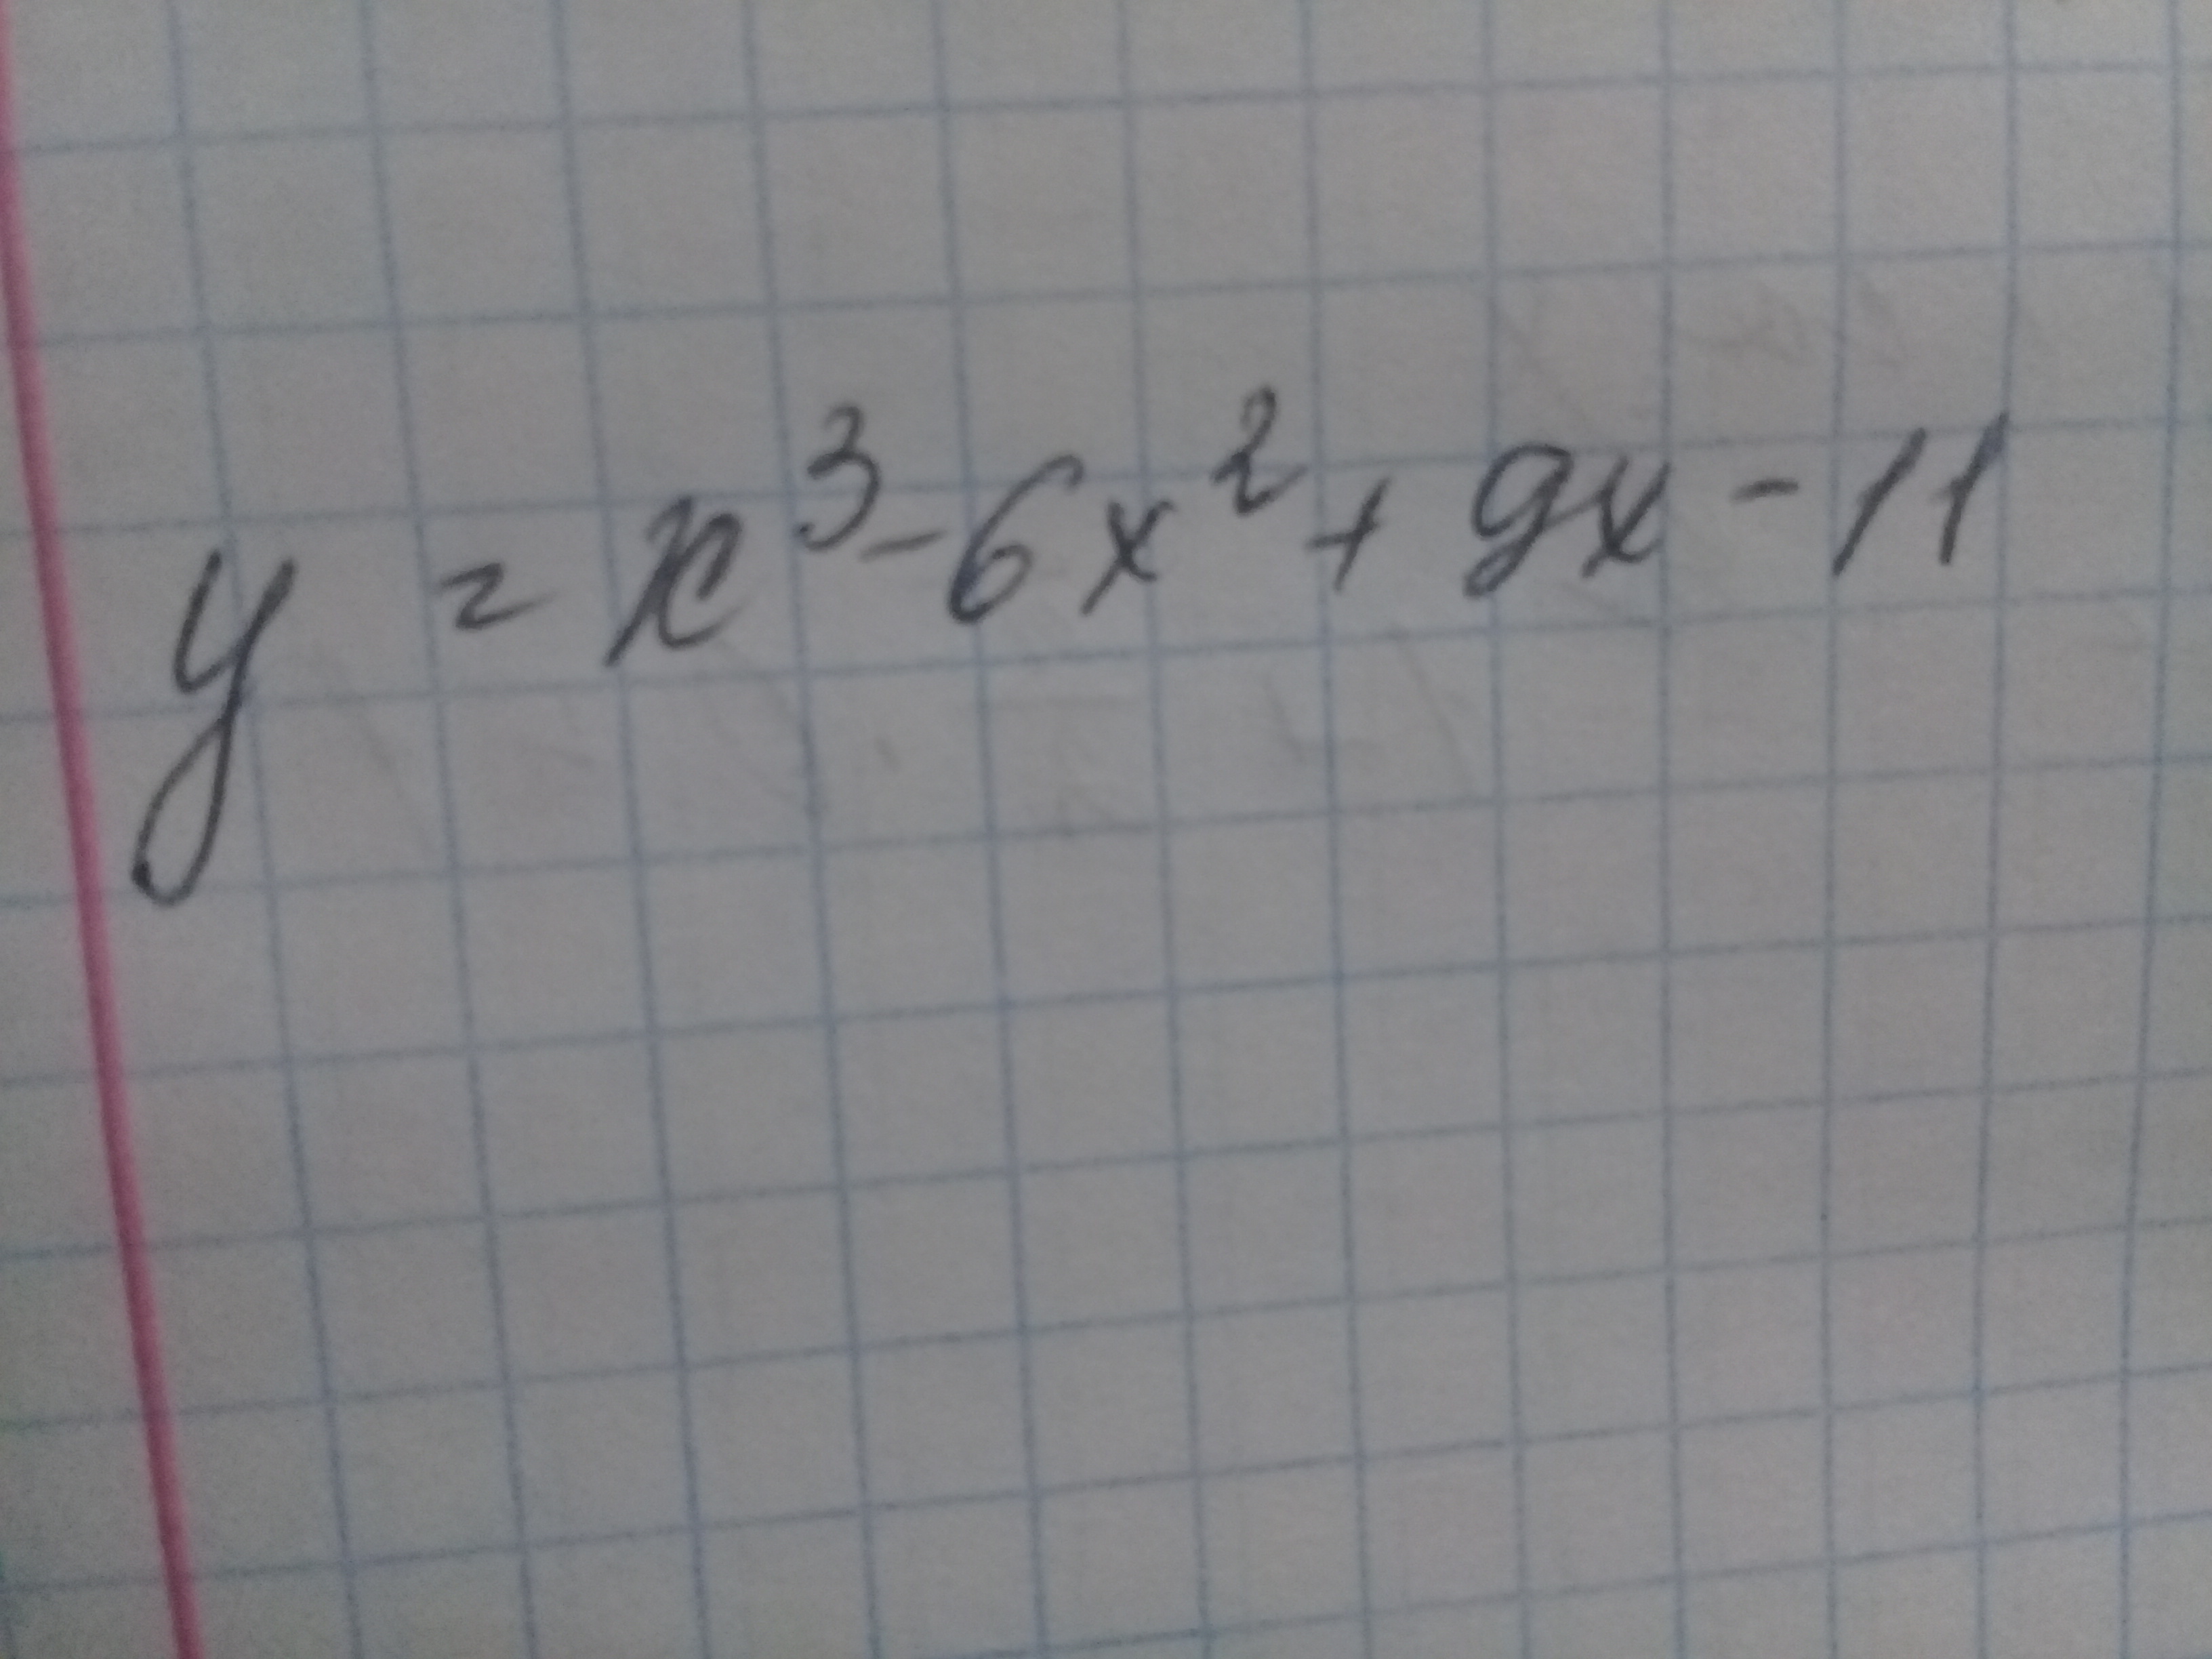 y = x³-6x²+9x-11